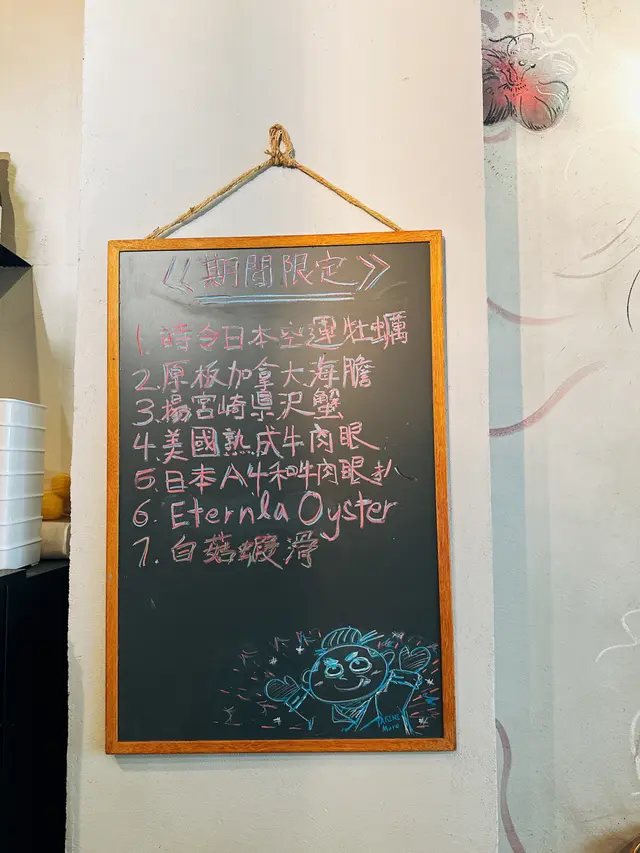 《期間限定》
1. 時令日本空運牡蠣
2. 原板加拿大海膽
3. 揚宮崎県沢蟹
4. 美國熟成牛肉眼
5. 日本A4和牛肉眼扒
6. Eternla Oyster
7. 白菇蝦滑